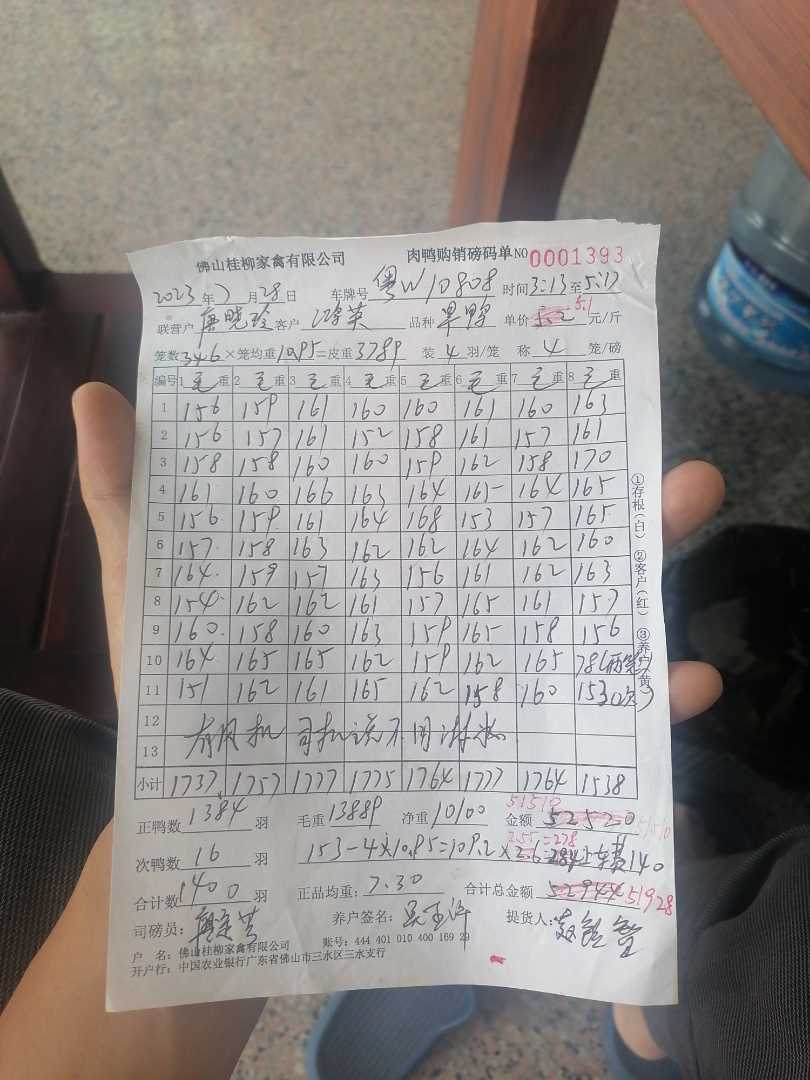 佛山桂柳家禽有限公司 肉鸭购销磅码单 NO 0001393
2023年7月28日 车牌号 粤W10808 时间 3:13至5:17
联营户 唐晓玲 客户 品种 果鸭 单价 5.2 5.1 元/斤
笼数 346×笼均重 10.95=皮重 3789 装 4 羽/笼 称 4 笼/磅
编号 1 毛重 2 毛重 3 毛重 4 毛重 5 毛重 6 毛重 7 毛重 8 毛重
1 156 159 161 160 160 161 160 163
2 156 157 161 152 158 161 157 161
3 158 158 160 160 159 162 158 170
4 161 160 166 163 164 165 164 165
5 156 159 161 164 168 153 157 165
6 157 158 163 162 162 164 162 160
7 164 159 157 163 156 161 162 163
8 154 162 162 161 157 165 161 157
9 160 158 160 163 159 165 158 156
10 164 165 165 162 159 162 165 78(两笼)
11 151 162 161 165 162 158 160 153(次)
12
13
有风机 司机说不用淋水
小计 1737 1757 1777 1775 1764 1777 1764 1538
正鸭数 1384 羽 毛重 13889 净重 10100 金额 52520 51510
次鸭数 16 羽 153-4×10.95=109.2×2.6=284 2.55=278 上车费140
合计数 1400 羽 正品均重: 7.30 合计总金额 52944 51928
司磅员: 养户签名: 提货人:
户 名: 佛山桂柳家禽有限公司 账号: 444 401 010 400 169 29
开户行: 中国农业银行广东省佛山市三水区三水支行
①存根(白) ②客户(红) ③养户(黄)